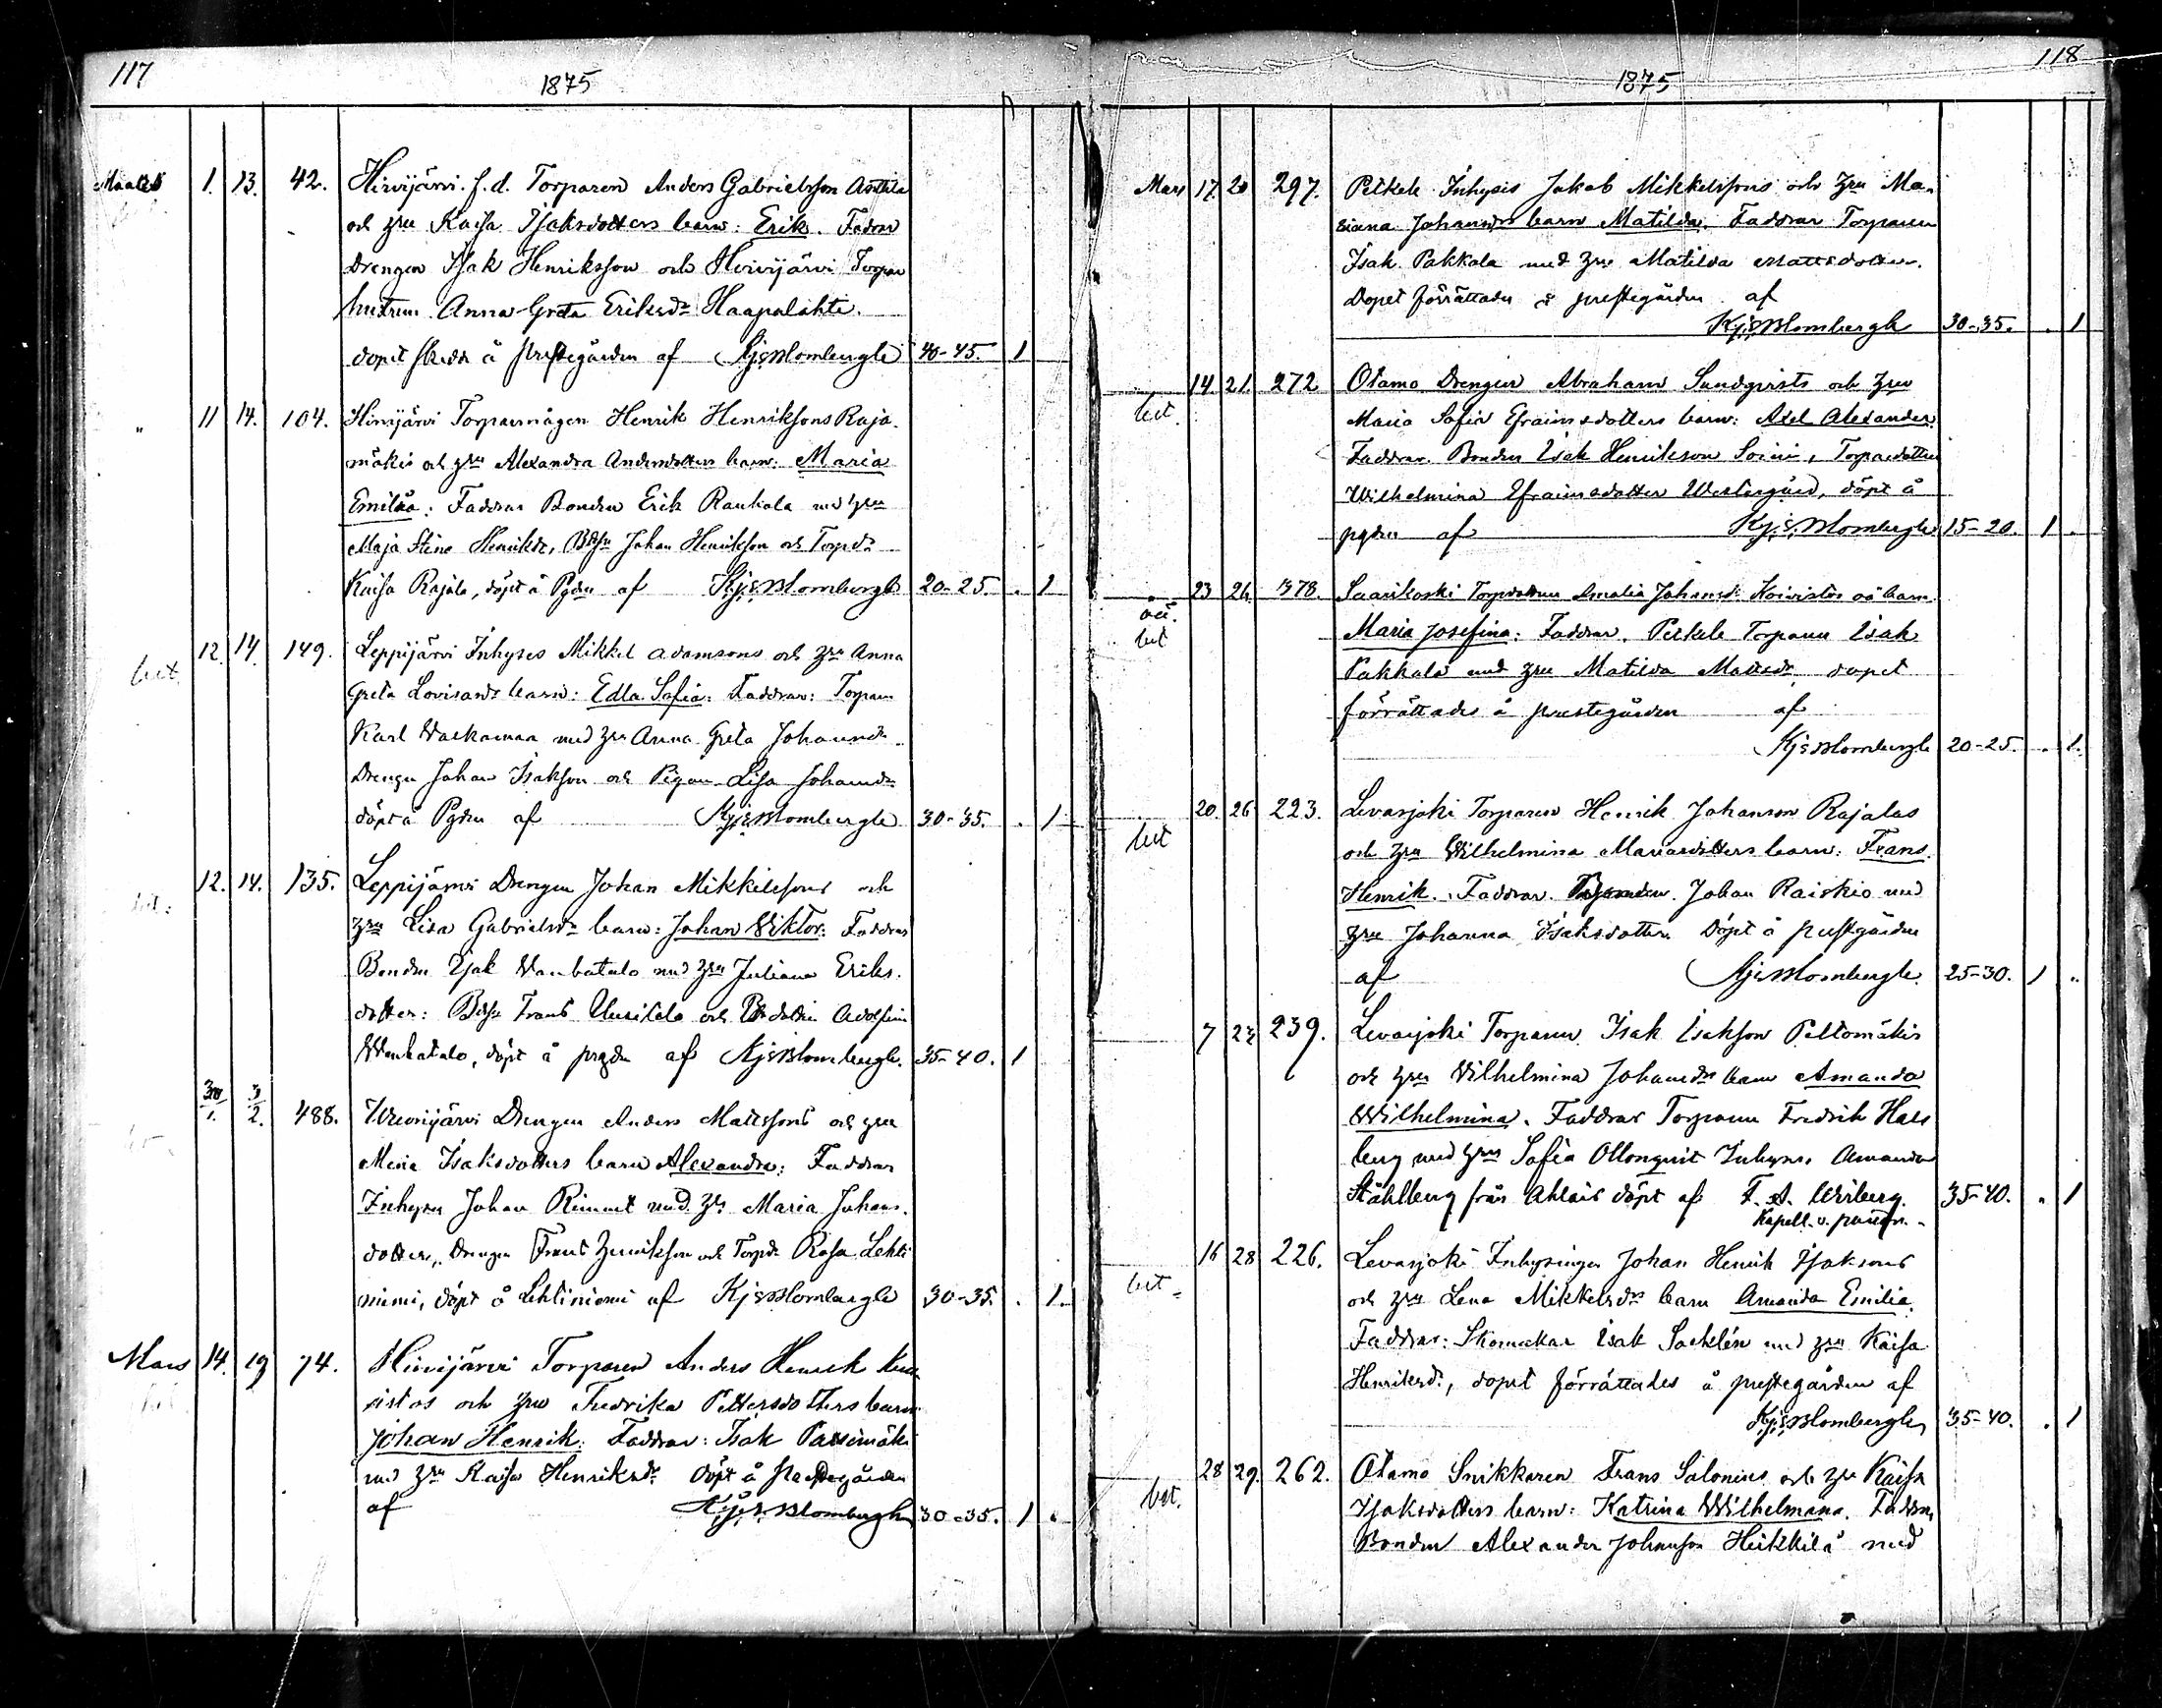 117
1875
Martii 1. 13. 42. Hirvijärvi f. d. Torparen Anders Gabrielsson Anttila
och hru Kaisa Isaksdotters barn: Erik. Faddrar
Drengen Isak Henriksson och Hirvijärvi Torpar
hustrun Anna Greta Eriksdr Haapalahti.
dopet skedde å prestegården af KjEBlombergh 40-45. 1
" 11 14. 104. Hirvijärvi Torparmågen Henrik Henrikssons Raja-
mäkis och hru Alexandra Andersdotters barn: Maria
Emilia: Faddrar Bonden Erik Raukola med hru
Maja Stina Henriksdr, Bdsn Johan Henrikson och Torpdr
Kaisa Rajala, döpt å Pgdn af KjEBlombergh 20-25. . 1
bet. 12. 14. 149. Leppijärvi Inhyses Mikkel Adamsons och hru Anna
Greta Lovisasdr barn: Edla Sofia: Faddrar: Torparen
Karl Waekamaa med hru Anna Greta Johansdr
Drengen Johan Isakson och Pigan Lisa Johansdr
döpt å Pgdn af KjEBlombergh 30-35. . 1
bet. 12. 14. 135. Leppijärvi Drengen Johan Mikkelssons och
hru Lisa Gabrielsdr barn: Johan Viktor: Faddrar
Bonden Isak Wanhatalo med hru Juliana Eriks-
dotter: Bdsn Frans Uusitalo och Bdrdottern Adolfina
Wanhatalo, döpt å prgdn af KjEBlombergh. 35-40. 1
30/1. 3/2. 488. Hirvijärvi Drengen Anders Mattssons och hru
Maria Isaksdotters barn Alexandra: Faddrar
Inhyses Johan Rimmet med hr Maria Johans-
dotter, Drengen Frans Henriksson och Torpdr Rosa Lehti
niemi, döpt å Lehtiniemi af KjEBlombergh 30-35. . 1.
Mars 14. 19 74. Hirvijärvi Torparen Anders Henrik
ristos och hru Fredrika Pettersdotters barn
Johan Henrik: Faddrar: Isak Passimäki
med hru Kaisa Henriksdr döpt å Prestegården
af KjEBlombergh 30-35. 1 .
118
1875
Mars 17. 20 297. Petkele Inhyses Jakob Mikkelssons och hru Ma-
riana Johansdr barn Matilda. Faddrar Torparen
Isak Pakkala med hru Matilda Mattsdotter.
Dopet förrättades å prestegården af
KjEBlombergh 30-35. . 1
bet. 14. 21. 272 Otamo Drengen Abraham Sundqvists och hru
Maria Sofia Efraimsdotters barn: Axel Alexander.
Faddrar Bonden Isak Henrikson Soini, Torparedottern
Wilhelmina Efraimsdotter Westergård, döpt å
pgdn af KjEBlombergh 15-20. 1 .
bet 23 26. 378. Saarikoski Torpdottern Amalia Johansdr Koivistos oä barn
Maria Josefina: Faddrar. Petkele Torparen Isak
Pakkala med hru Matilda Mattsdr, dopet
förrättades å prestegården af
KjEBlombergh 20-25. . 1.
bet 20. 26 223. Levasjoki Torparen Henrik Johanson Rajalas
och hru Wilhelmina Mariasdotters barn: Frans
Henrik. Faddrar. Johan Raiskio med
hru Johanna Isaksdotter. Döpt å prestgården
af KjEBlombergh 25-30. 1 .
7 23 239. Levasjoki Torparen Isak Isaksson Peltomäkis
och hru Wilhelmina Johansdr barn Amanda
Wilhelmina. Faddrar Torparen Fredrik Hall
berg med hru Sofia Ollonqvist Inhyses Amanda
Ståhlberg från Ahlais döpt af F. A. Wirberg. 35-40. . 1
Kapell. o. pastor.
bet. 16 28 226. Levasjoki Inhysingen Johan Henrik Isaksons
och hru Lena Mikkelsdrs barn Amanda Emilia.
Faddrar: Skomakar Isak Sacklén med hru Kaisa
Henriksdr, dopet förrättades å prestegården af
KjEBlombergh 35-40. . 1
bet. 28 29. 262. Otamo Snikkaren Frans Salonius och hru Kaisa
Isaksdotters barn: Katrina Wilhelmina. Faddrar
Bonden Alexander Johansson Heikkilä med